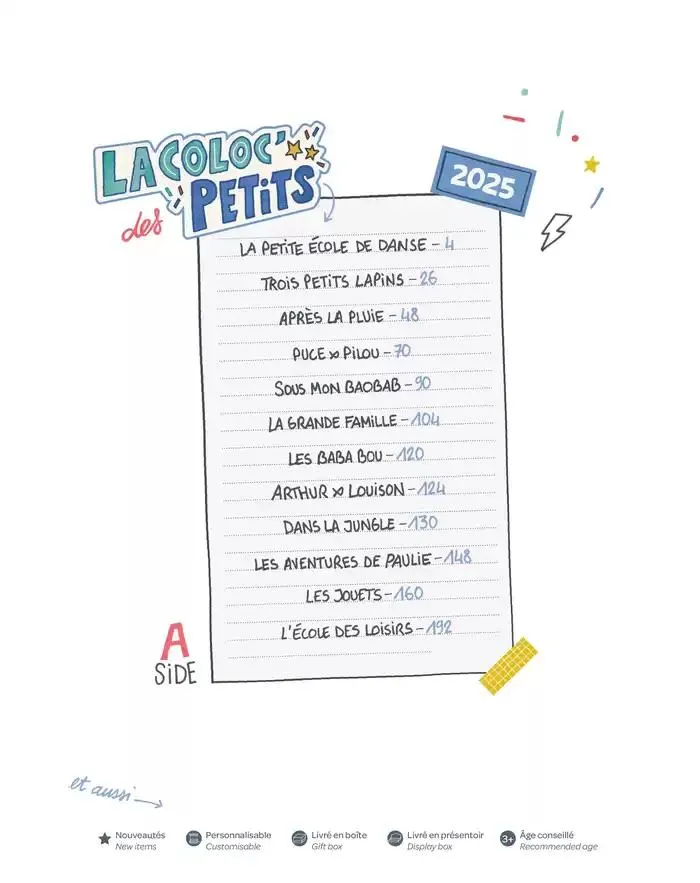 LA COLOC'
des PETITS
2025
LA PETITE ÉCOLE DE DANSE – 4
TROIS PETITS LAPINS – 26
APRÈS LA PLUIE – 48
PUCE & PILOU – 70
SOUS MON BAOBAB – 90
LA GRANDE FAMILLE – 104
LES BABA BOU – 120
ARTHUR & LOUISON – 124
DANS LA JUNGLE – 130
LES AVENTURES DE PAULIE – 148
LES JOUETS – 160
L'ÉCOLE DES LOISIRS – 192
A
SIDE
et aussi
Nouveautés
New items
Personnalisable
Customisable
Livré en boîte
Gift box
Livré en présentoir
Display box
3+
Âge conseillé
Recommended age